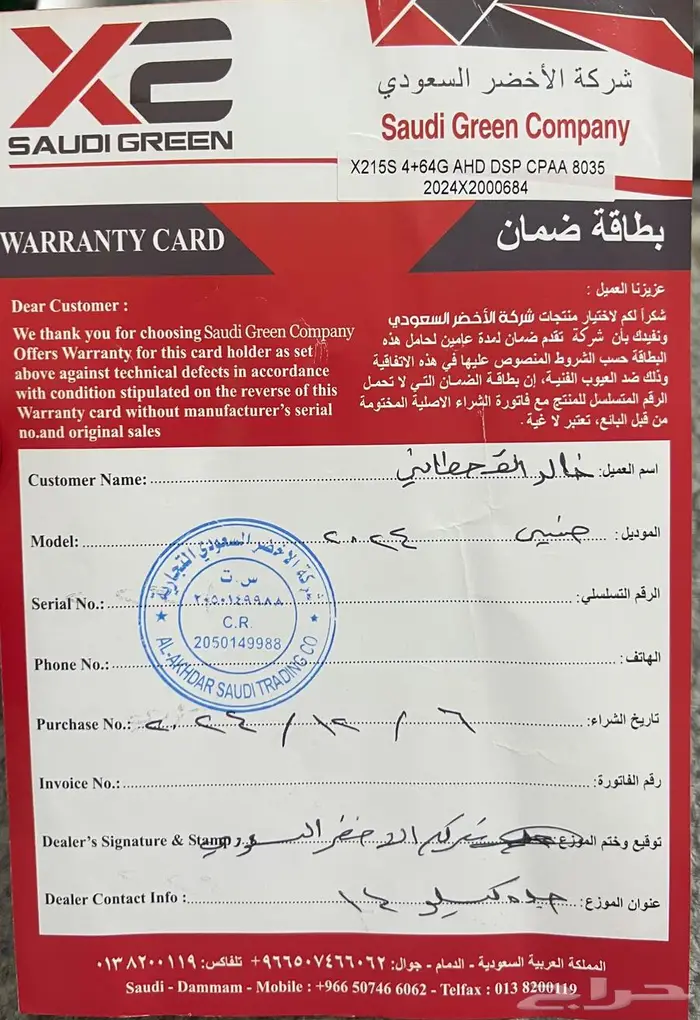 X2
SAUDI GREEN
شركة الأخضر السعودي
Saudi Green Company
X215S 4+64G AHD DSP CPAA 8035
2024X2000684
WARRANTY CARD
بطاقة ضمان
Dear Customer :
We thank you for choosing Saudi Green Company
Offers Warranty for this card holder as set
above against technical defects in accordance
with condition stipulated on the reverse of this
Warranty card without manufacturer's serial
no.and original sales
عزيزنا العميل :
شكراً لكم لاختيار منتجات شركة الأخضر السعودي
ونفيدك بأن شركة تقدم ضمان لمدة عامين لحامل هذه
البطاقة حسب الشروط المنصوص عليها في هذه الاتفاقية
وذلك ضد العيوب الفنية، إن بطاقة الضمان التي لا تحمل
الرقم المتسلسل للمنتج مع فاتورة الشراء الاصلية المختومة
من قبل البائع، تعتبر لا غية.
Customer Name: خالد القحطاني اسم العميل:
Model: ٢٠٢٤ الموديل:
Serial No.: الرقم التسلسلي:
Phone No.: الهاتف:
Purchase No.: ٦ / ١٢ / ٢٠٢٤ تاريخ الشراء:
Invoice No.: رقم الفاتورة:
Dealer's Signature & Stamp: شركة الاخضر السعودي توقيع وختم الموزع:
Dealer Contact Info : جده كيلو ١٤ عنوان الموزع:
شركة الاخضر السعودي التجارية
س.ت
٢٠٥٠١٤٩٩٨٨
C.R.
2050149988
AL-AKHDAR SAUDI TRADING CO
المملكة العربية السعودية - الدمام - جوال: ٩٦٦٥٠٧٤٦٦٠٦٢+ تلفاكس: ٠١٣٨٢٠٠١١٩
Saudi - Dammam - Mobile : +966 50746 6062 - Telfax : 013 8200119
حراج